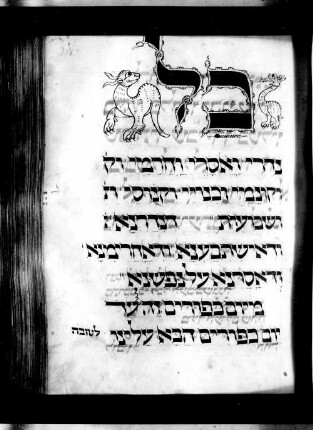 כל
נדרי ואסרי וחרמי
וקונמי וכנויי וקנוסי
ושבועות דנדרנא
ודאישתבענא ודאחרימנא
ודאסרנא על נפשנא
מיום כפורים זה עד
יום כפורים הבא עלינו לטובה